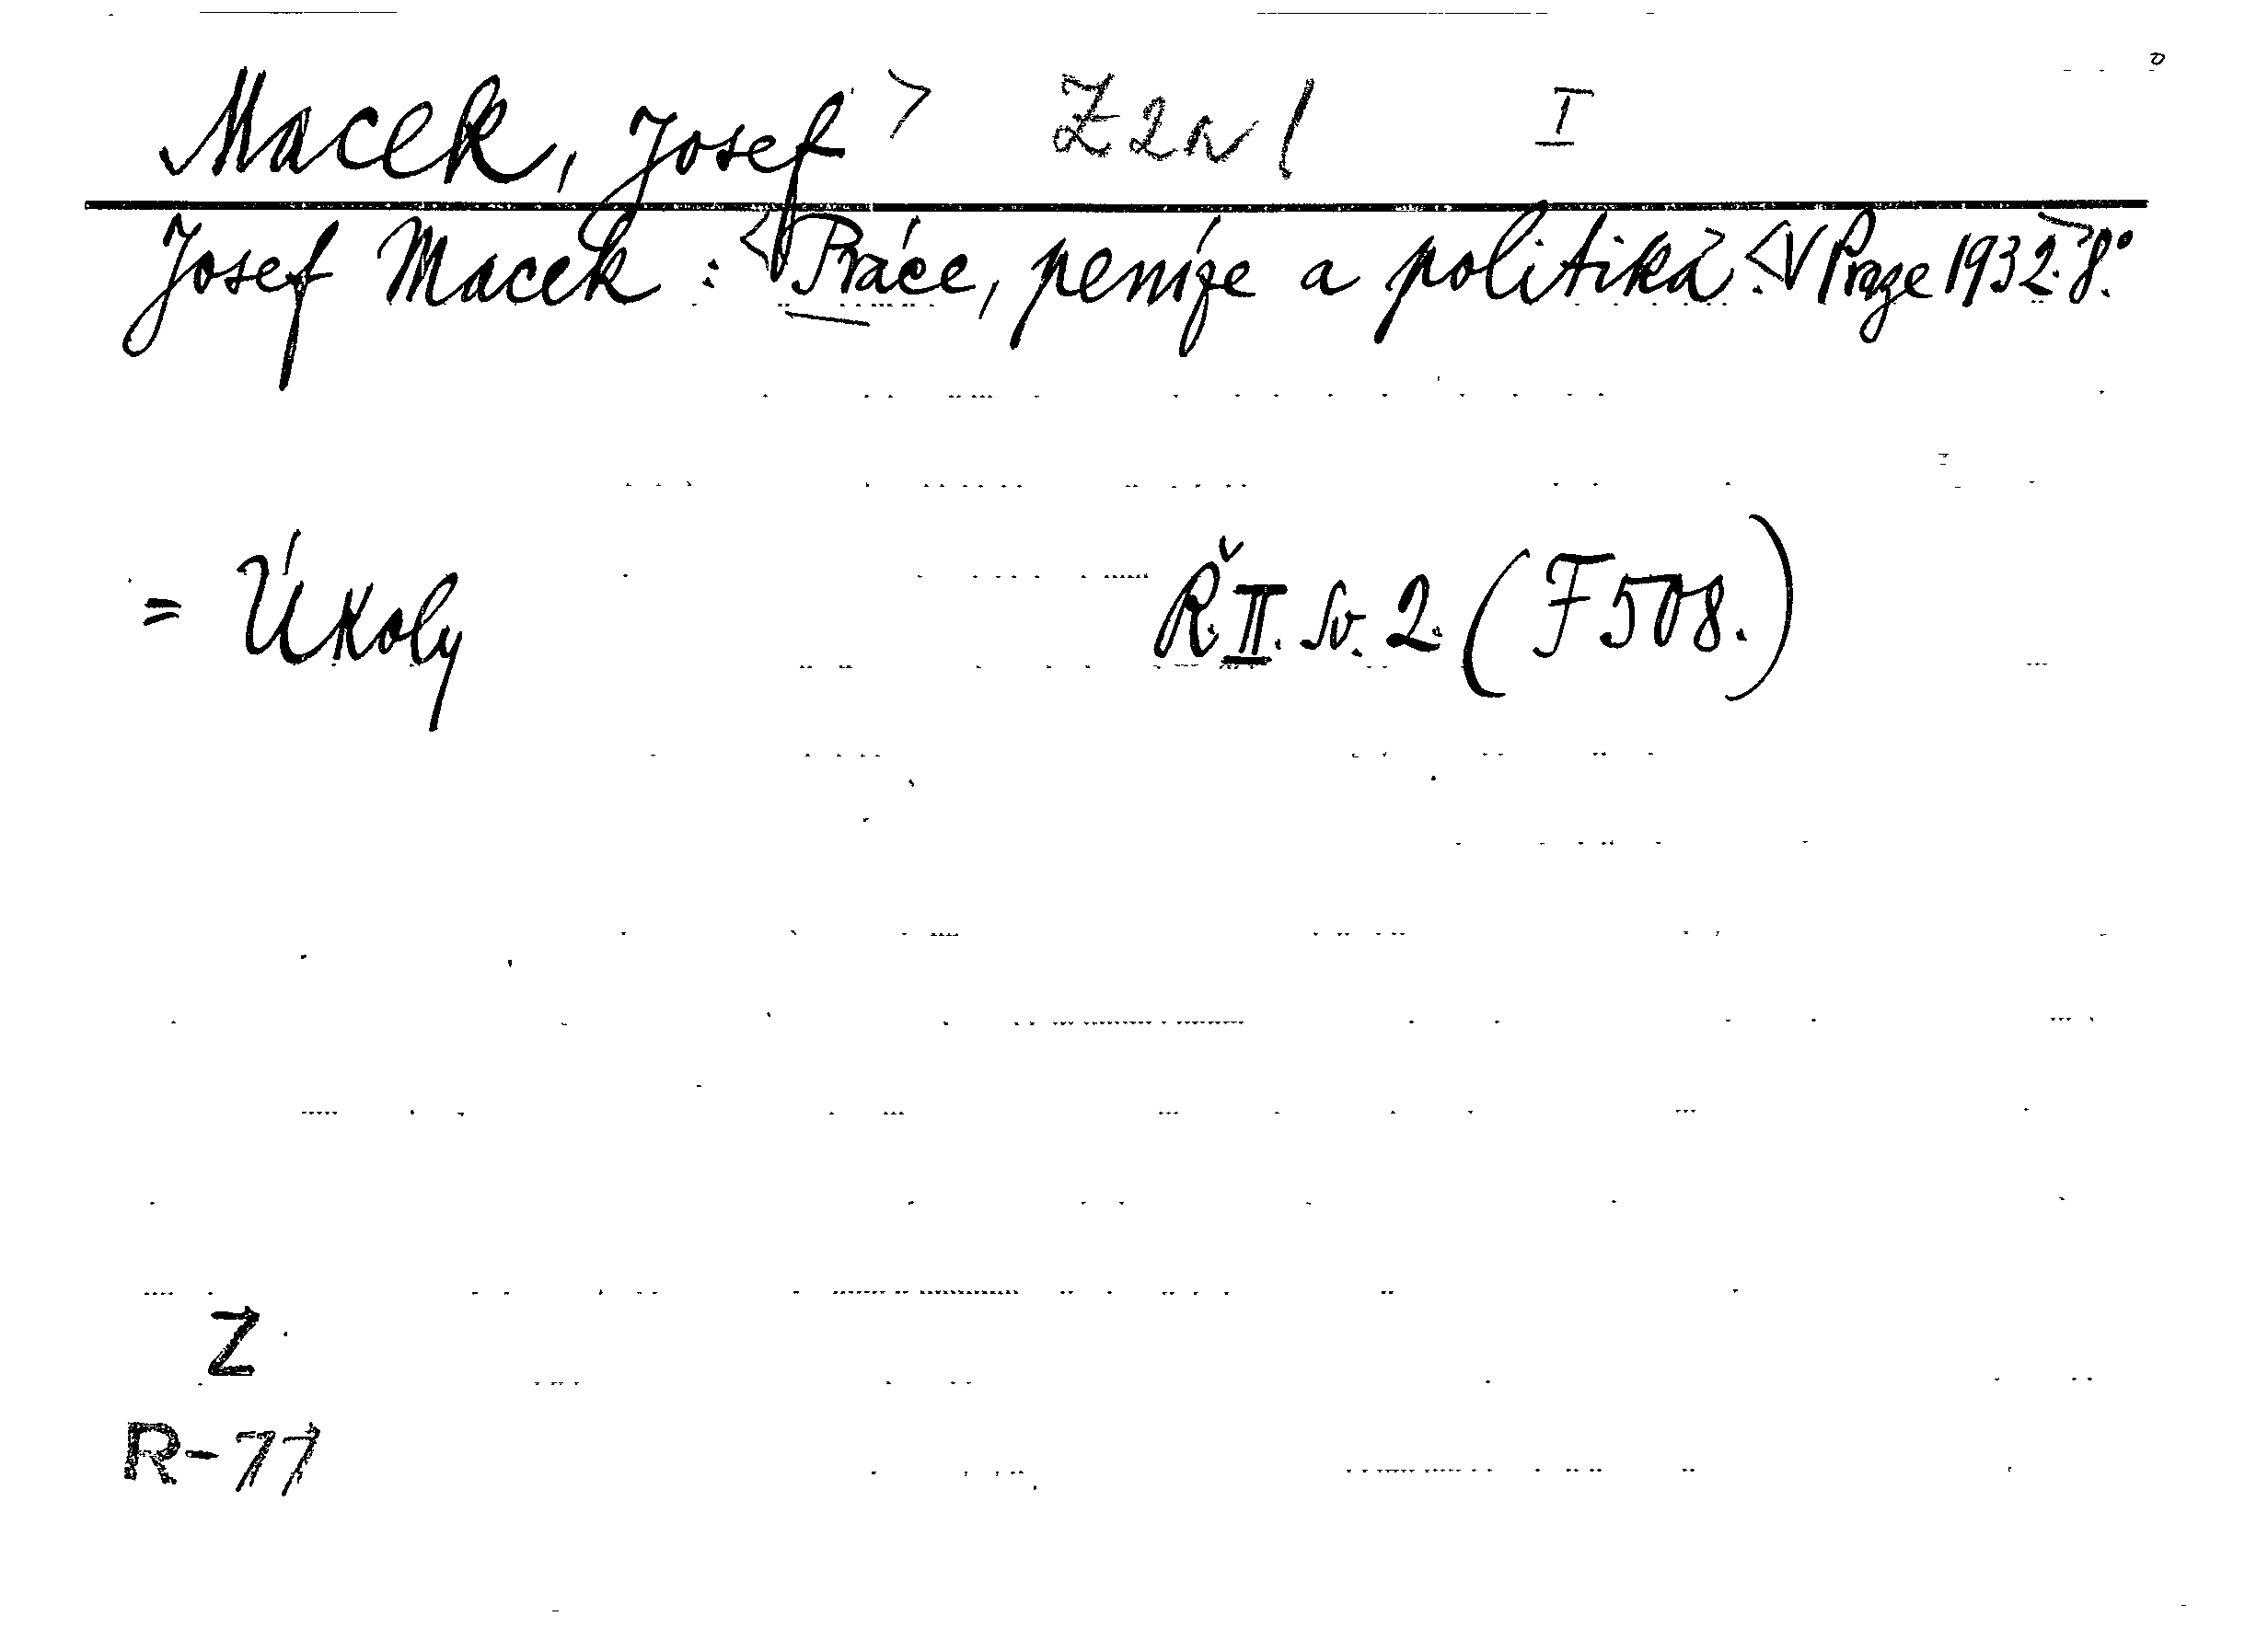 Macek, Josef> Z2a1 I
Josef Macek: <Práce, peníze a politika.> <V Praze 1932.> 8°.
= Úkoly Ř.II. sv. 2. (F508.)
Z
R-77